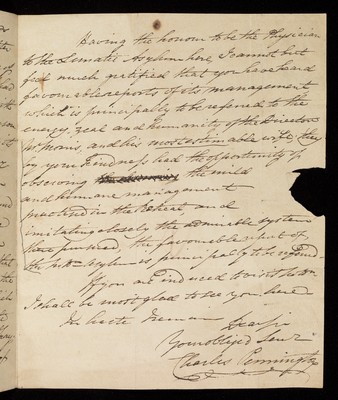 Having the honour to be the Physician
to the Lunatic Asylum here I cannot but
feel much gratified that you have heard
favourable reports of its management
which is principally to be referred to the
energy, zeal and humanity of the Director
Mr Morris, and his most estimable wife, they
by your kindness had the opportunity of
observing the mild
and humane management
practised in the Retreat and
imitating closely the admirable system
there pursued, the favourable report of
the Asylum is principally to be
If you are induced to visit
I shall be most glad to see you here
In haste I remain
Dear Sir
Your obliged Servt
Charles Pennington